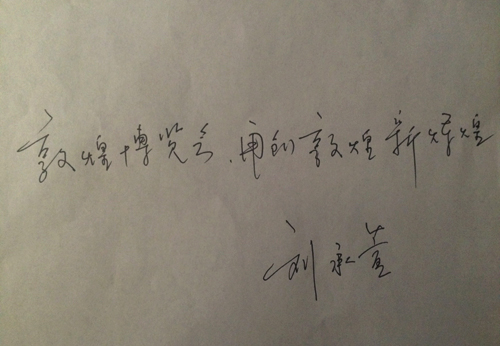 敦煌博览会，再创敦煌新辉煌
刘承萱